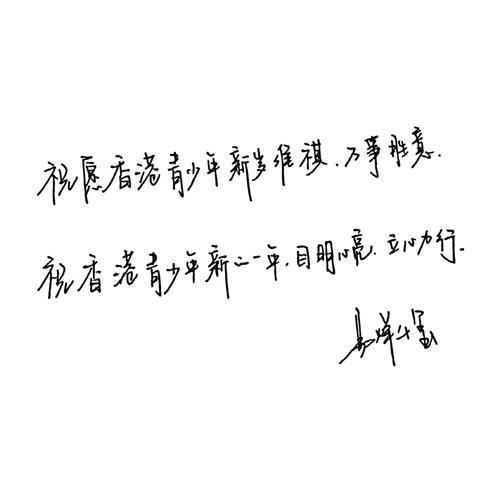 祝愿香港青少年新岁维祺、万事胜意.
祝香港青少年新的一年,目明心亮,立心力行。
易烊千玺